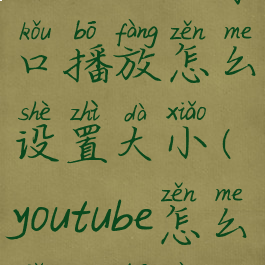 kǒu bō fàng zěn me
口播放怎么
shè zhì dà xiǎo
设置大小(
zěn me
youtube怎么